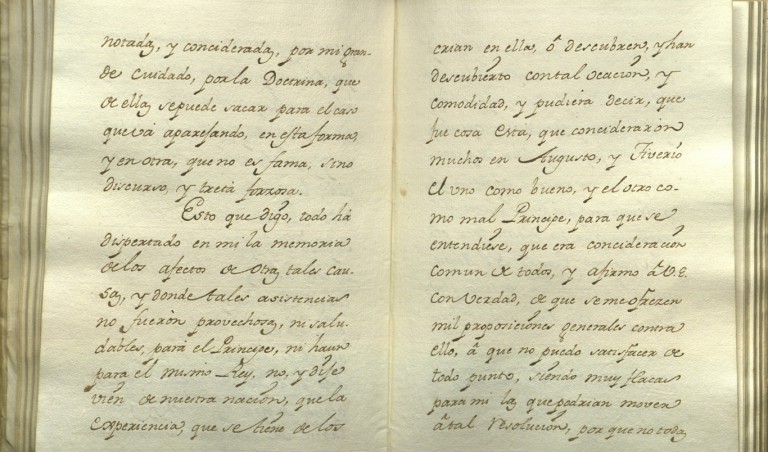 notadas, y concideradas, por mi gran-
de Cuidado, por la Doctrina, que
de ellas se puede sacar para el caso
que vá aparejando, en esta forma,
y en otra, que no es fama, sino
discurso, y treta forzosa.
Esto que digo, todo há
dispertado en mi la memoria
de los afectos de otras tales Cau-
sas, y donde tales asistencias
no fueròn provechosas, ni salu-
dables, para el Principe, ni haun
para el mismo Rey, no, y dise
vien de nuestra nacion, que la
experiencia, que se tiene de los
crian en ella, ô descubren, y han
descubierto con tal ocacion, y
comodidad, y pudiera decir, que
fue cosa esta, que concideraròn
muchos en Augusto, y Tiverio
el uno como bueno, y el otro co-
mo mal Principe, para que se
entendiese, que era concideracion
comun de todos, y afirmo â V.E.
con verdad, de que se me ofrezen
mil proposiciones generales contra
ello, â que no puedo satisfacer de
todo punto, siendo muy flacas
para mi las que podrian mover
â tal resolucion, por que no todas